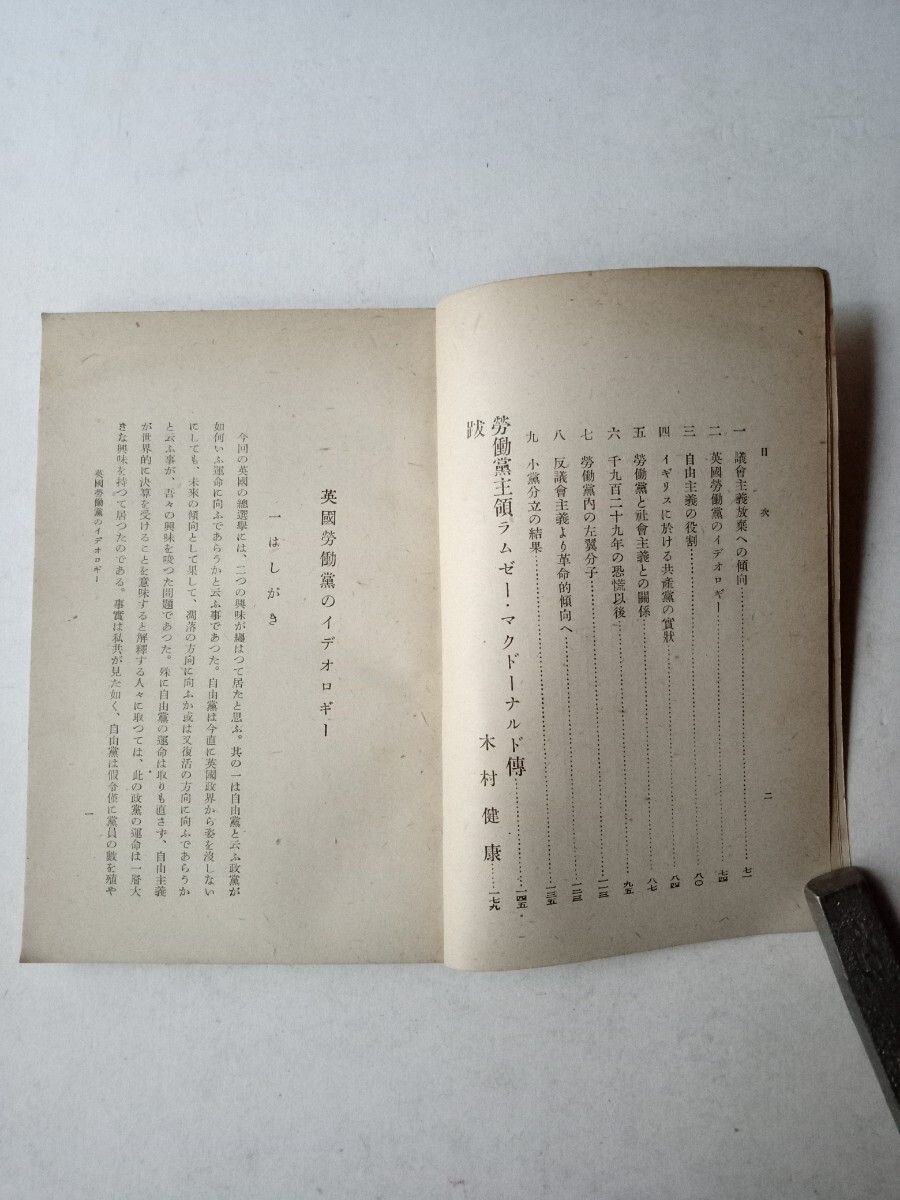 目次
二
一 議會主義放棄への傾向……七一
二 英國勞働黨のイデオロギー……七四
三 自由主義の役割……八〇
四 イギリスに於ける共產黨の實狀……八四
五 勞働黨と社會主義との關係……八七
六 千九百二十九年の恐慌以後……九五
七 勞働黨內の左翼分子……一一三
八 反議會主義より革命的傾向へ……一二三
九 小黨分立の結果……一三五
勞働黨主領ラムゼー・マクドーナルド傳……一四五
跋 木村健康……一七九
英國勞働黨のイデオロギー
一 はしがき
今回の英國の總選擧には、二つの興味が纏はつて居たと思ふ。其の一は自由黨と云ふ政黨が
如何いふ運命に向ふであらうかと云ふ事であつた。自由黨は今直に英國政界から姿を沒しない
にしても、未來の傾向として果して、凋落の方向に向ふか或は又復活の方向に向ふであらうか
と云ふ事が、吾々の興味を唆つた問題であつた。殊に自由黨の運命は取りも直さず、自由主義
が世界的に決算を受けることを意味すると解釋する人々に取つては、此の政黨の運命は一層大
きな興味を持つて居つたのである。事實は私共が見た如く、自由黨は假令僅に黨員の數を殖や
英國勞働黨のイデオロギー
一